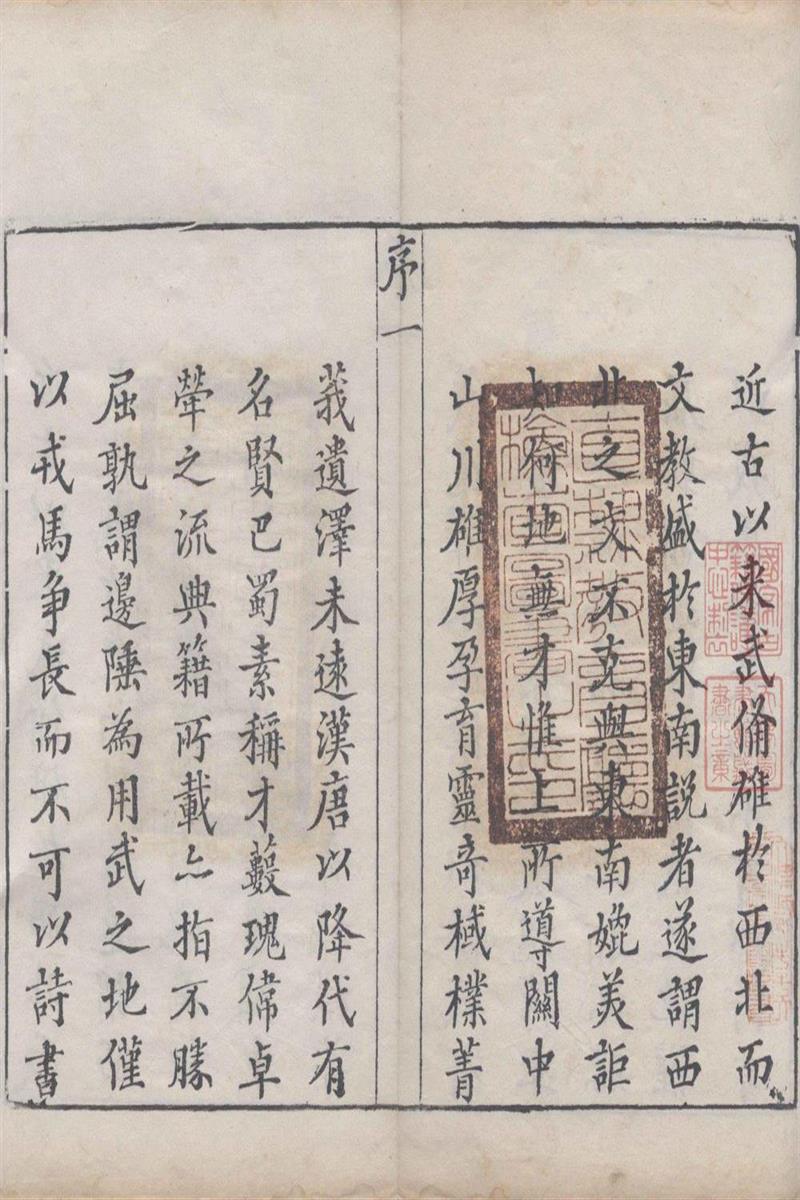 近古以来武俻雄扵西北而
文教盛扵東南説者遂謂西
北之文不克與東南媲美詎
知何地無才惟上所導關中
山川雄厚孕育靈奇棫樸菁
序一
莪遺澤未遠漢唐以降代有
名賢巴蜀素稱才藪瑰偉卓
犖之流典籍所載亦指不勝
屈孰謂邊陲為用武之地僅
以戎馬争長而不可以詩書